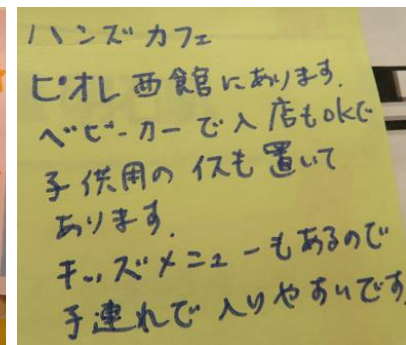 ハンズカフェ
ピオレ西館にあります.
ベビーカーで入店もokで
子供用のイスも置いて
あります.
キッズメニューもあるので
子連れで入りやすいです.